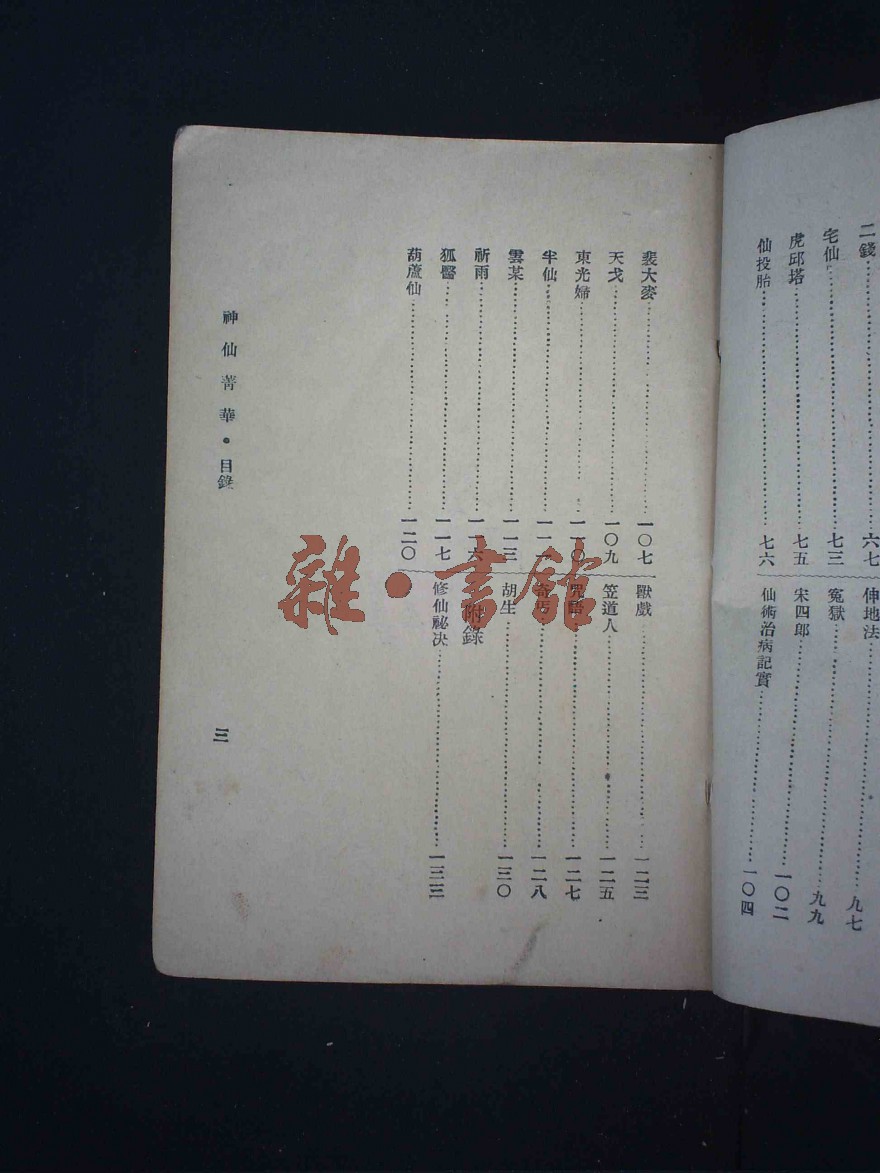 二錢……六七
宅仙……七三
虎邱塔……七五
仙投胎……七六
伸地法……九七
冤獄……九九
宋四郎……一〇二
仙術治病記實……一〇四
裴大婆……一〇七
天戈……一〇九
東光婦……一一〇
半仙……一一一
雲某……一一三
祈雨……一一六
狐醫……一一七
葫蘆仙……一二〇
獸戲……一二三
笠道人……一二五
咒語……一二七
奇丐……一二八
胡生……一三〇
附錄
修仙祕决……一三三
神仙菁華•目錄
三
雜•書館